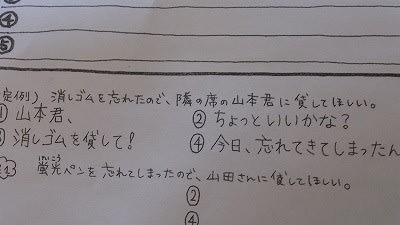 ④
⑤
定例) 消しゴムを忘れたので、隣の席の山本君に貸してほしい。
① 山本君、 ② ちょっといいかな?
③ 消しゴムを貸して! ④ 今日、忘れてきてしまったん
けいこう
蛍光ペンを忘れてしまったので、山田さんに貸してほしい。
②
④